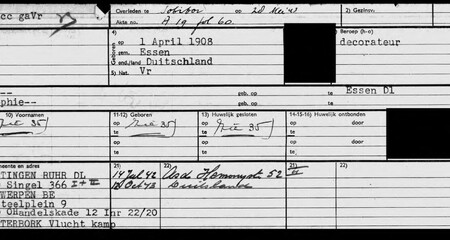 cc gaVr
Overleden te Sobibor op 28 Mei '43
Akte no. A 19 fol 60
2) Gezinsv.
4)
Geboren
op 1 April 1908
gem. Essen
land Duitschland
5) Nat. Vr
Beroep (h-o)
decorateur
geb. op te Essen Dl
phie-- geb. op te
10) Voornamen
11-12) Geboren
13) Huwelijk gesloten
14-15-16) Huwelijk ontbonden
Zie 35
op Zie 35
te
op Zie 35
te
op door
te
op
te
op
te
op door
te
meente en adres
21)
22)
21)
22)
TTINGEN RUHR DL
Singel 366 I + III
WERPEN BE
teelplein 9
handelskade 12 Inr 22/20
TERBORK Vlucht kamp
14 Jul 42
Oct 43
52
Duitsland